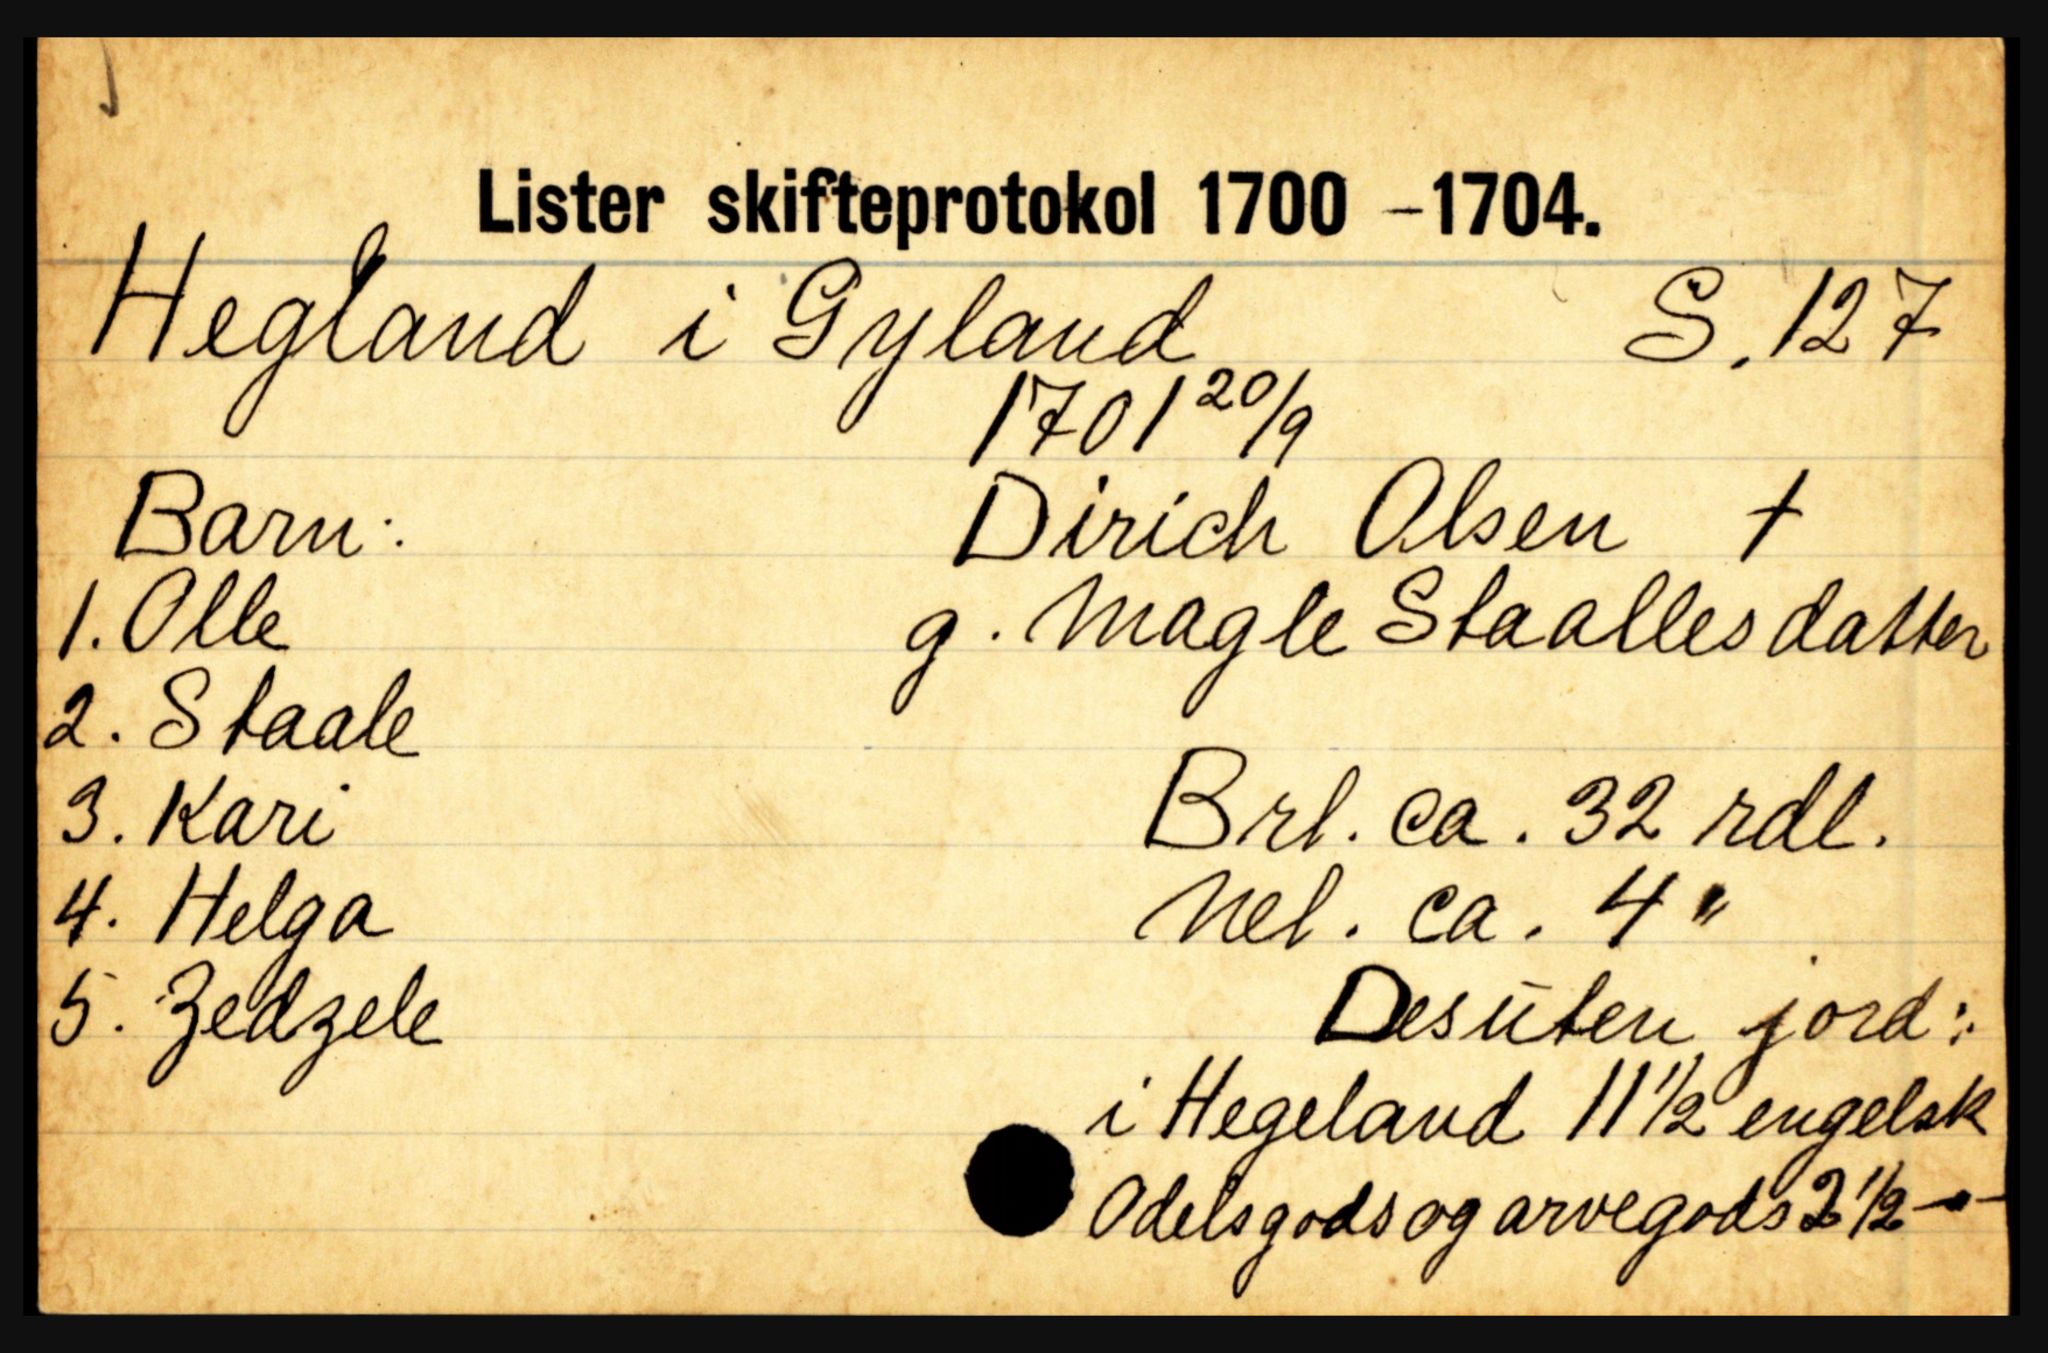 Lister skifteprotokol 1700 -1704.
Hegland i Gyland S. 127
1701 20/9
Barn: Dirich Olsen †
1. Olle g. Magle Staallesdatter
2. Staale
3. Kari Brl. ca. 32 rdl.
4. Helga Nel. ca. 4 "
5. Zedzele Desuten jord:
i Hegeland 11 1/2 engelsk
Odelsgods og arvegods 2 1/2 -"-